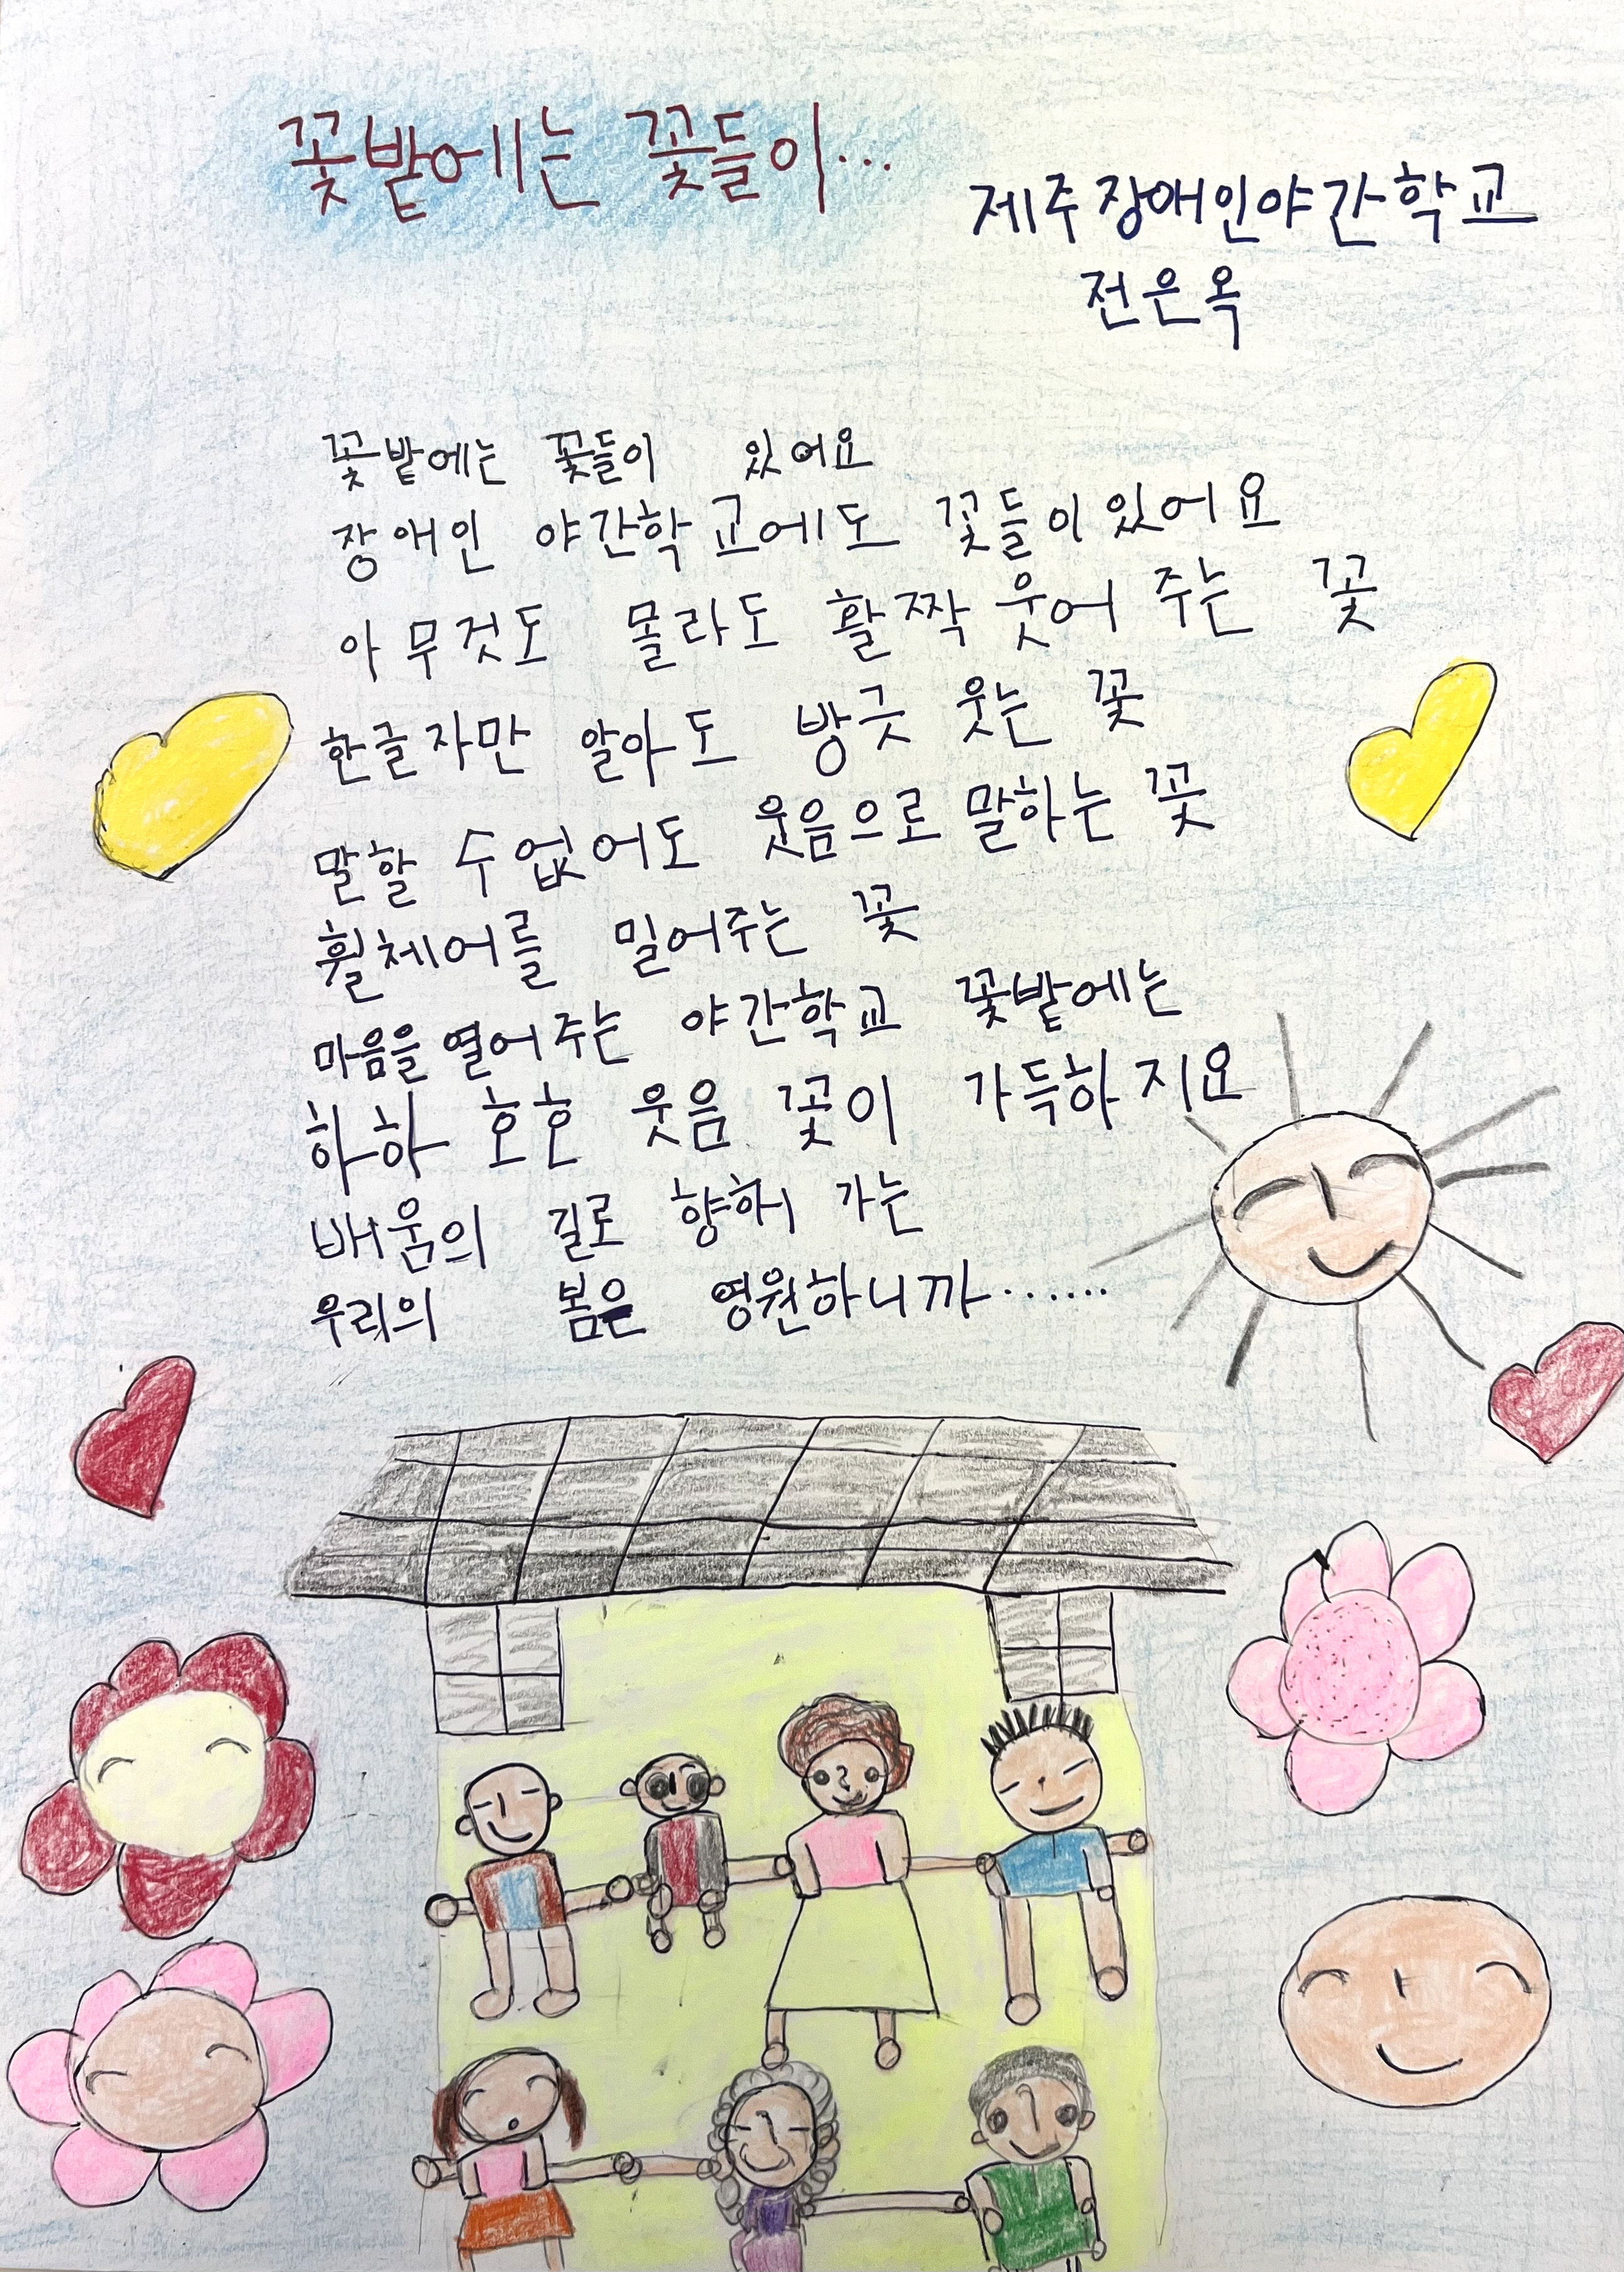 꽃밭에는 꽃들이...
제주장애인야간학교
전은옥
꽃밭에는 꽃들이 있어요
장애인 야간학교에도 꽃들이 있어요
아무것도 몰라도 활짝 웃어 주는 꽃
한글자만 알아도 방긋 웃는 꽃
말할 수 없어도 웃음으로 말하는 꽃
휠체어를 밀어주는 꽃
마음을 열어 주는 야간학교 꽃밭에는
하하 호호 웃음 꽃이 가득하지요
배움의 길로 향해 가는
우리의 봄은 영원하니까·······